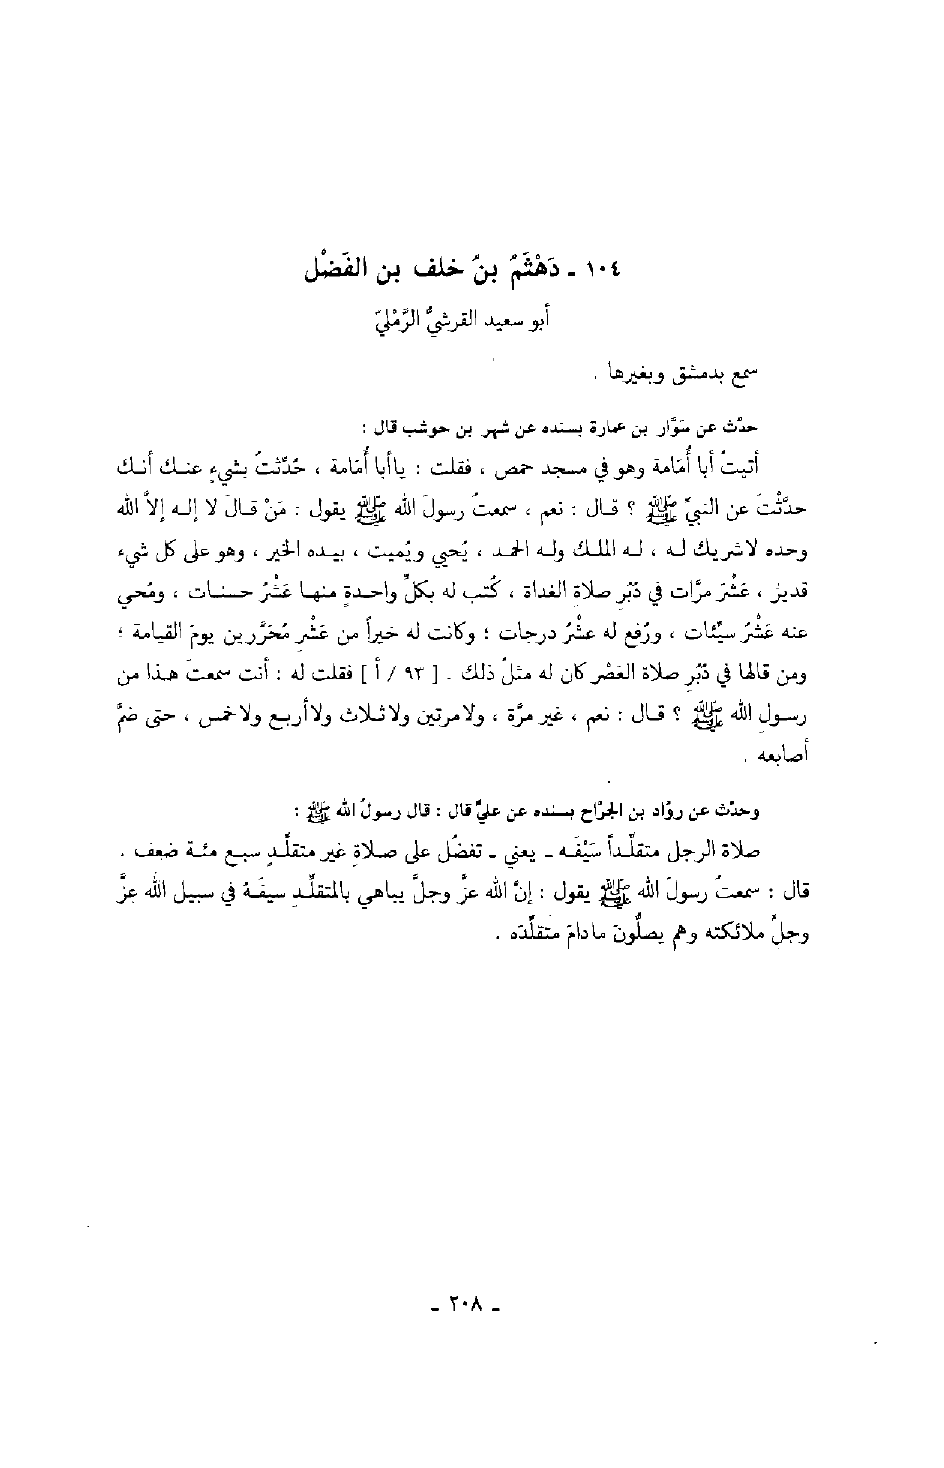 ١٠٤ - دَهْثَمُ بنُ خلف بن الفَضْل
أبو سعيد القرشيُّ الرَّمْليّ
سمع بدمشق وبغيرها .
حدّث عن سَوَّار بن عمارة بسنده عن شهر بن حوشب قال :
أتيتُ أبا أُمَامة وهو في مسجد حمص ، فقلت : ياأبا أُمَامة ، حُدِّثتُ بشيءٍ عنك أنك
حدَّثْتَ عن النبيّ ﷺ ؟ قال : نعم ، سمعتُ رسولَ الله ﷺ يقول : مَنْ قالَ لا إله إلاَّ الله
وحده لاشريك له ، له الملك وله الحمد ، يُحيي ويُميت ، بيده الخير ، وهو على كل شيء
قدير ، عَشْرَ مرَّات في دُبُر صلاة الغداة ، كُتب له بكلِّ واحدةٍ منها عَشْرُ حسنات ، ومُحي
عنه عَشْرُ سيِّئات ، ورُفع له عشْرُ درجات ؛ وكانت له خيراً من عَشْرِ مُحَرَّرين يومَ القيامة ؛
ومن قالها في دُبُرِ صلاة العَصْر كان له مثلُ ذلك . [ ٩٣ / أ ] فقلت له : أنت سمعتَ هذا من
رسولِ الله ﷺ ؟ قال : نعم ، غير مرَّة ، ولامرتين ولاثلاث ولاأربع ولاخمس ، حتى ضمَّ
أصابعه .
وحدّث عن روَّاد بن الجرَّاح بسنده عن عليٍّ قال : قال رسولُ الله ﷺ :
صلاة الرجل متقلِّداً سَيْفَه - يعني - تفضُل على صلاةِ غير متقلِّدٍ سبع مئة ضعف .
قال : سمعتُ رسولَ الله ﷺ يقول : إنَّ الله عزَّ وجلَّ يباهي بالمتقلِّدِ سيفَهُ في سبيل الله عزَّ
وجلَّ ملائكته وهم يصلُّونَ مادامَ متقلِّدَه .
- ٢٠٨ -